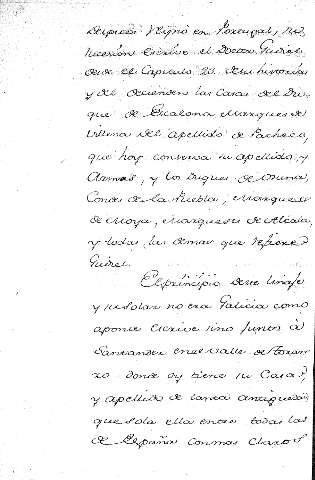 despues Reynó en Portugal, cuia
succesion escrive el Doctor Gudiel
desde el Capitulo 23. de su historia
y del decienden las Casas del Du-
que de Escalona Marques de
Villena del apellido de Pacheco,
que hoy conserva su apellido, y
Armas, y los Duques de Osuna,
Condes de la Puebla, Marqueses
de Moya, Marqueses de Alcala,
y todas las demas que refiere
Gudiel.
El principio de este linaje
y su solar no era Galicia como
aponte escrive sino junto á
Santander en el valle de Toran-
zo donde oy tiene su Casa,
y apellido de tanta antiguedad
que sola ella entre todas las
de España con mas claros